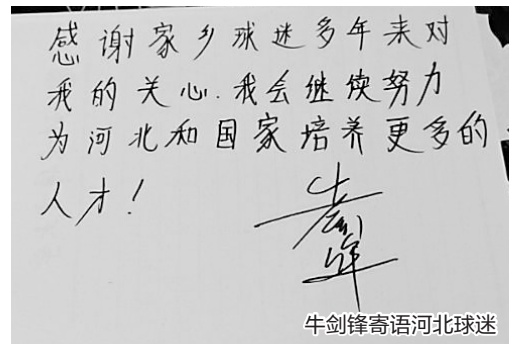 感谢家乡球迷多年来对
我的关心.我会继续努力
为河北和国家培养更多的
人才！
牛剑锋寄语河北球迷